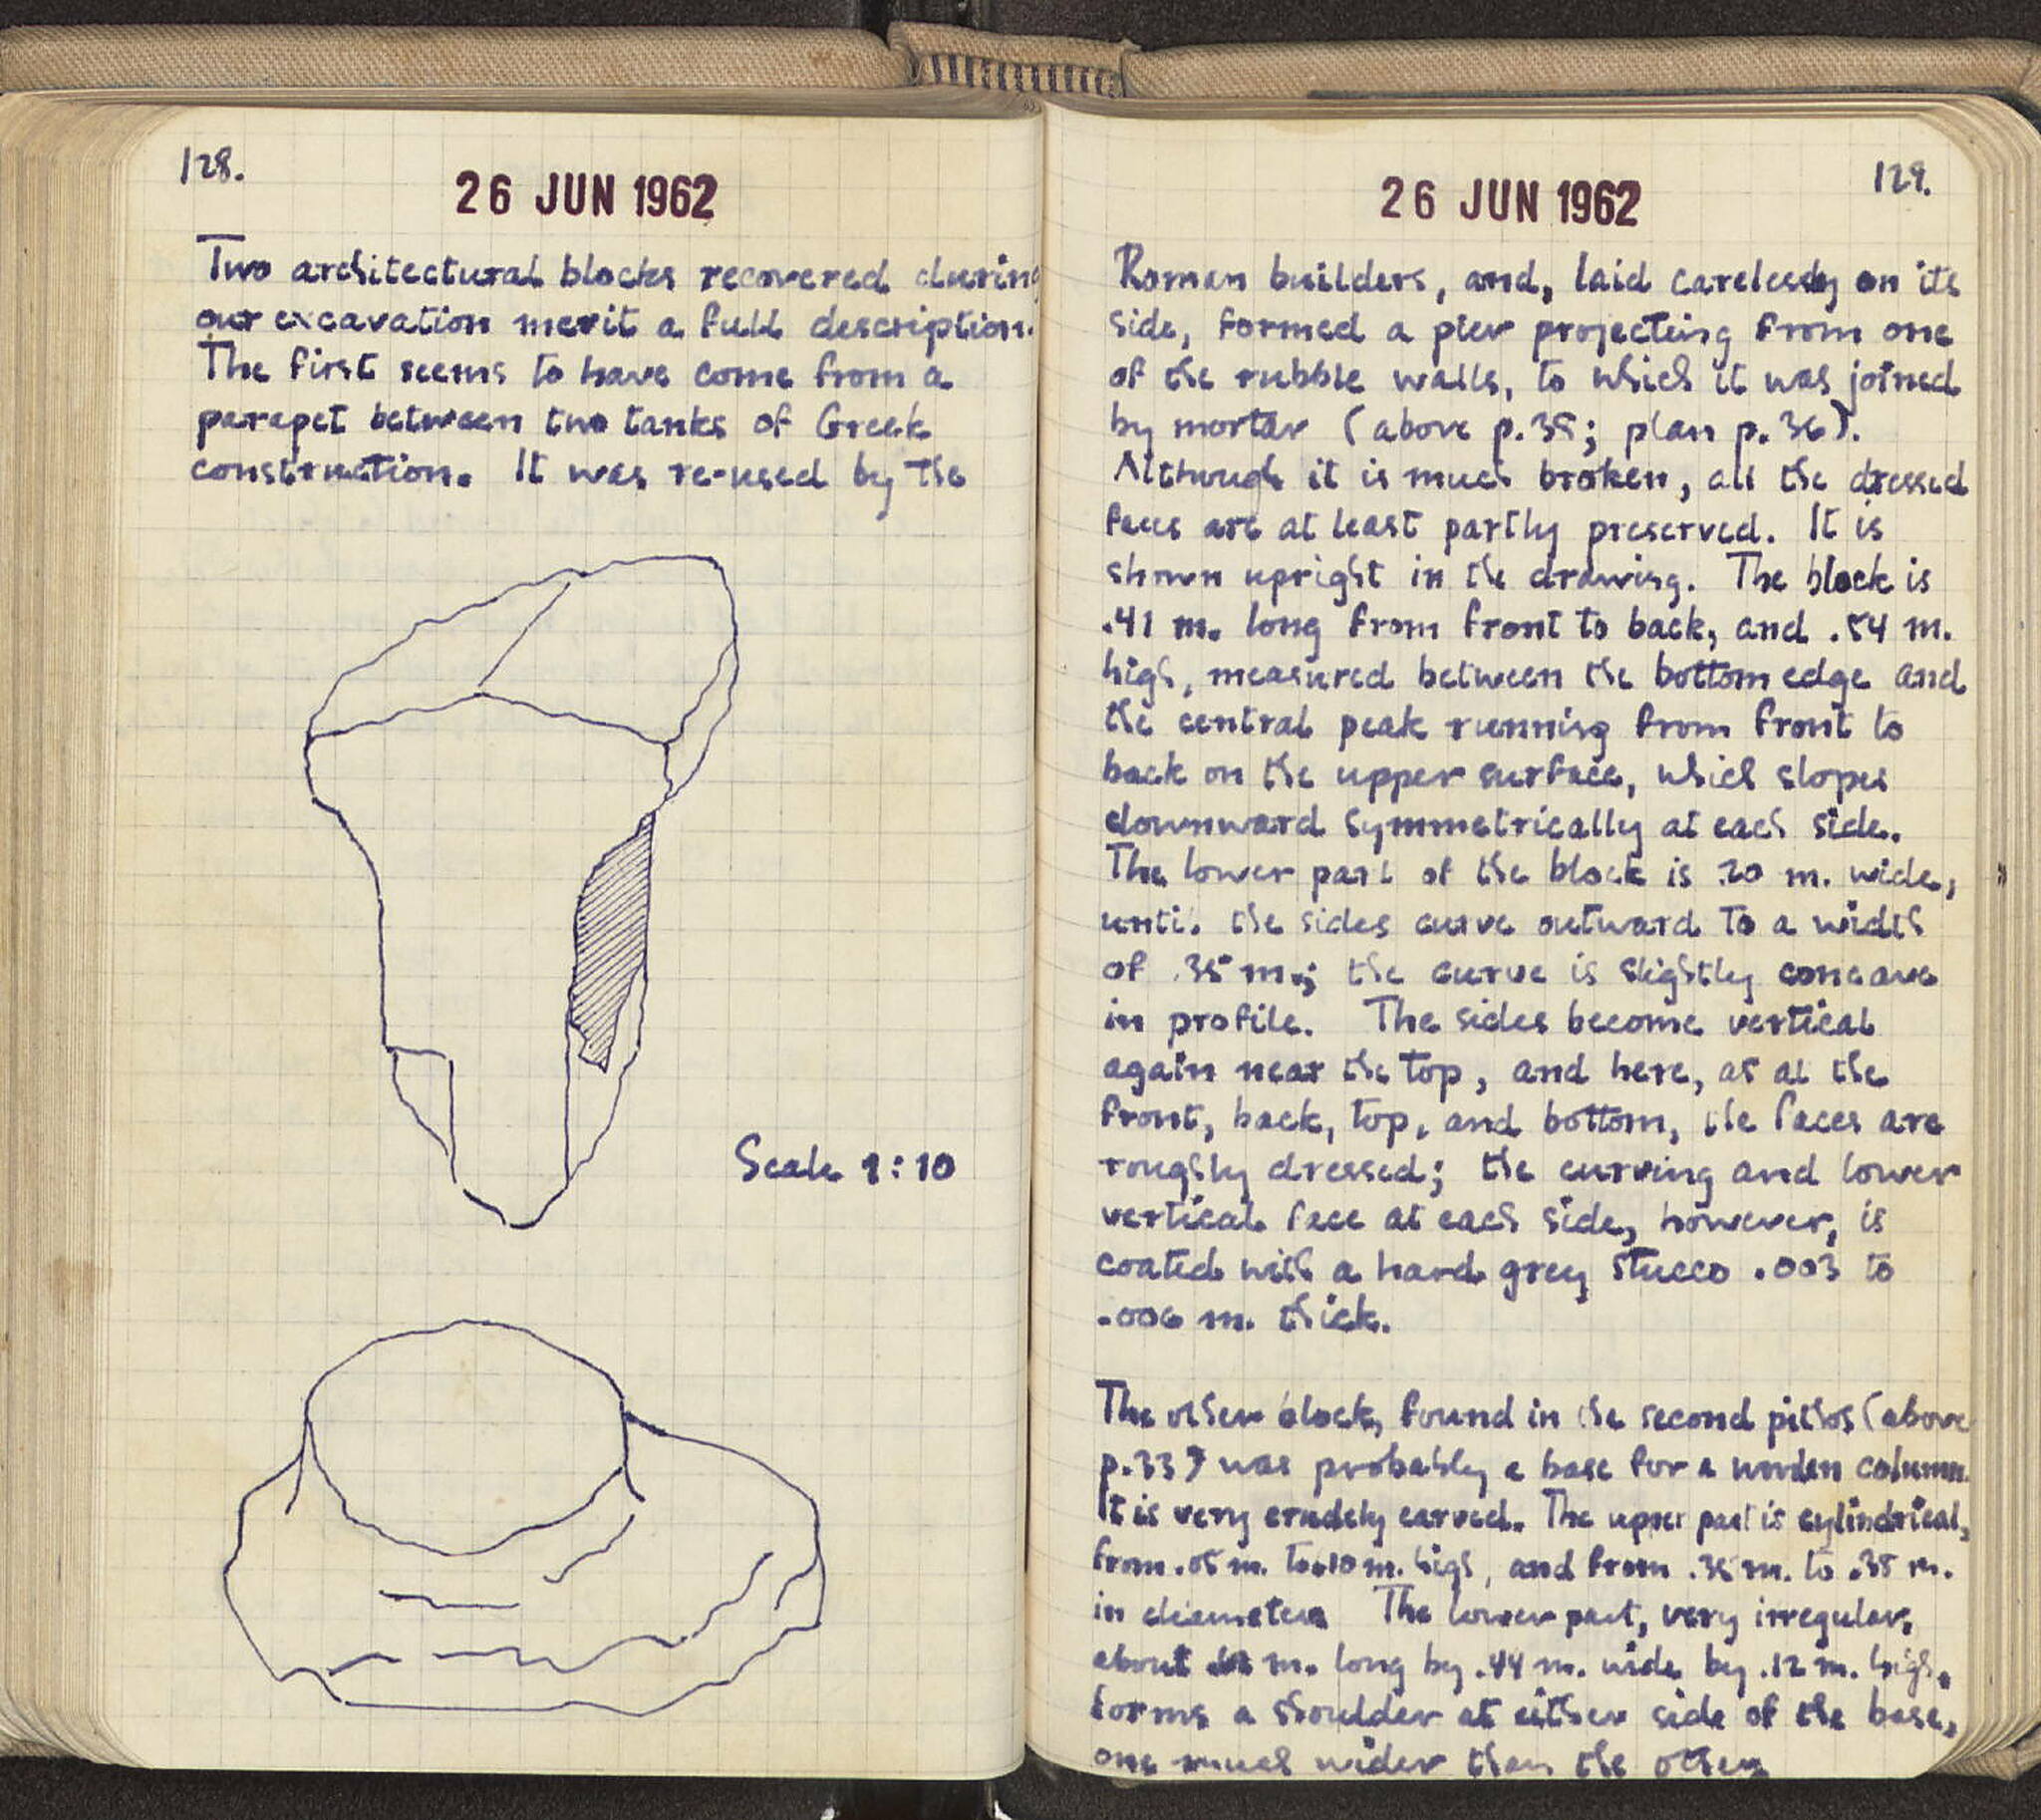 128.
26 JUN 1962
Two architectural blocks recovered during
our excavation merit a full description.
The first seems to have come from a
parapet between two tanks of Greek
construction. It was re-used by the
Scale 1:10
129.
26 JUN 1962
Roman builders, and, laid carelessly on its
side, formed a pier projecting from one
of the rubble walls, to which it was joined
by mortar (above p.35; plan p.36).
Although it is much broken, all the dressed
faces are at least partly preserved. It is
shown upright in the drawing. The block is
.41 m. long from front to back, and .54 m.
high, measured between the bottom edge and
the central peak running from front to
back on the upper surface, which slopes
downward symmetrically at each side.
The lower part of the block is .20 m. wide,
until the sides curve outward to a width
of .35 m.; the curve is slightly concave
in profile. The sides become vertical
again near the top, and here, as at the
front, back, top, and bottom, the faces are
roughly dressed; the curving and lower
vertical face at each side, however, is
coated with a hard grey stucco .003 to
.006 m. thick.
The other block, found in the second pithos (above
p.33) was probably a base for a wooden column.
It is very crudely carved. The upper part is cylindrical,
from .05 m. to .10 m. high, and from .35 m. to .38 m.
in diameter. The lower part, very irregular,
about m. long by .44 m. wide by .12 m. high,
forms a shoulder at either side of the base,
one much wider than the other.